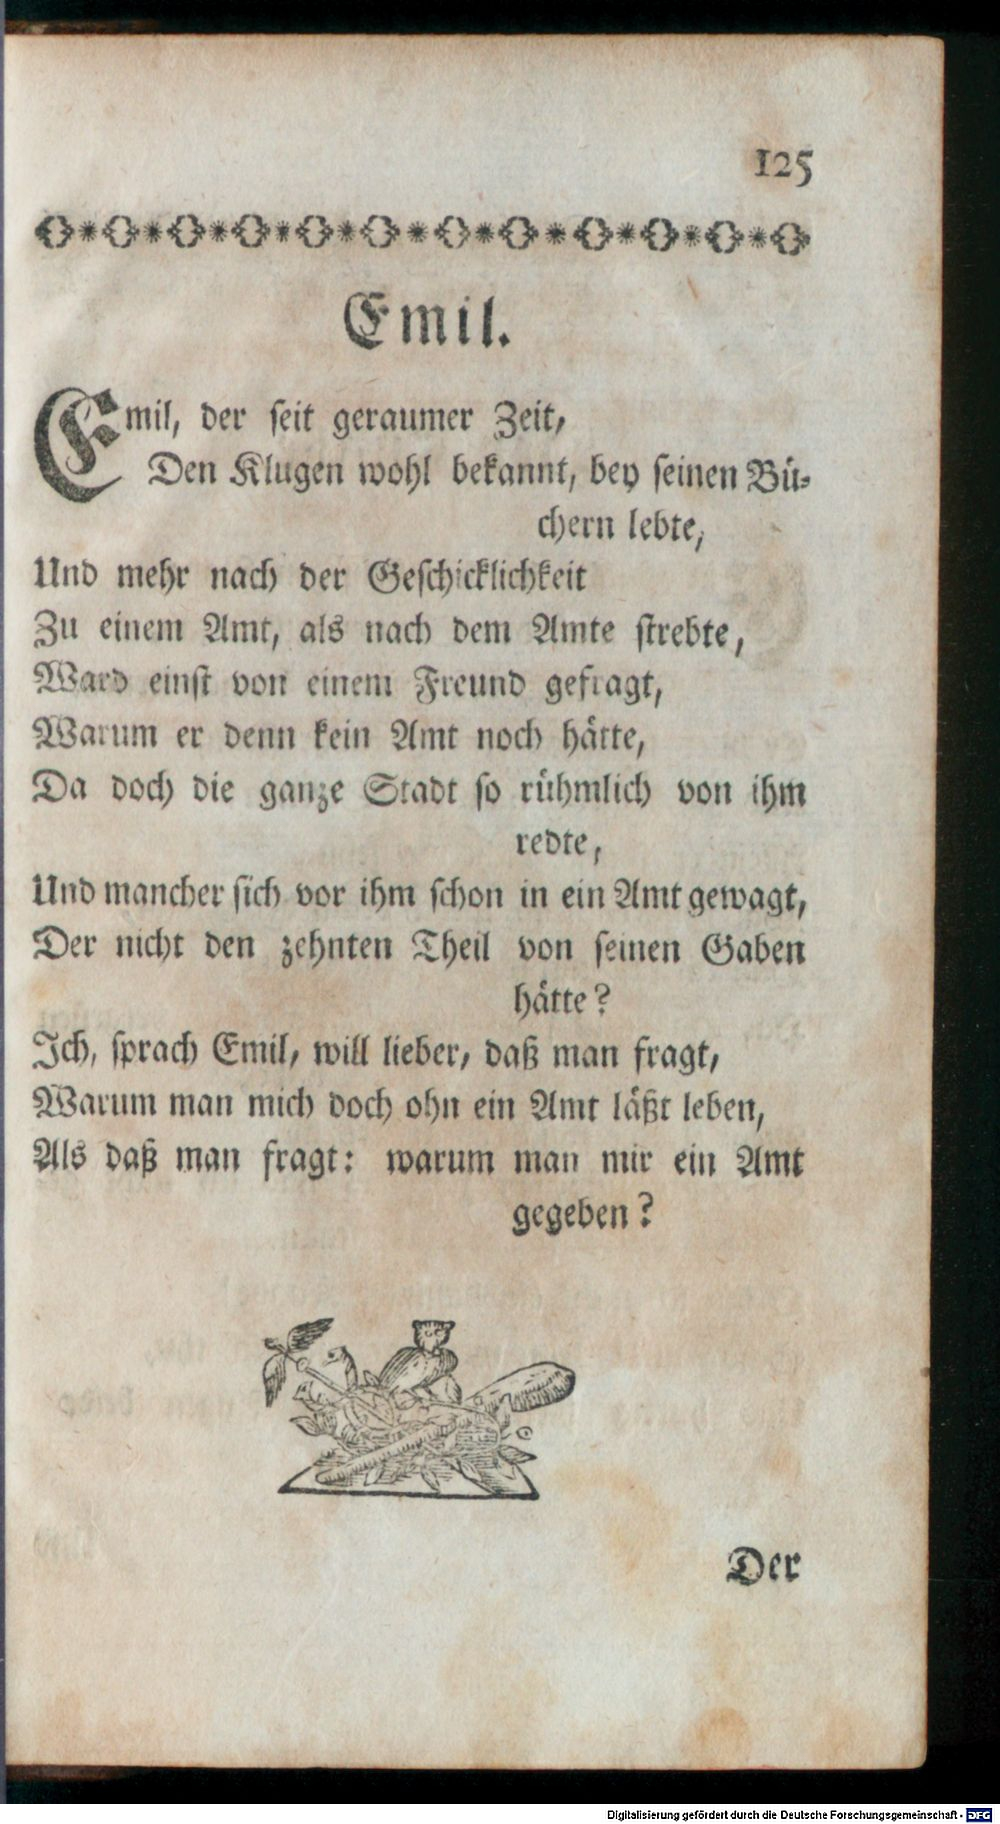 125
Emil.
Emil, der seit geraumer Zeit,
Den Klugen wohl bekannt, bey seinen Bü-
chern lebte,
Und mehr nach der Geschicklichkeit
Zu einem Amt, als nach dem Amte strebte,
Ward einst von einem Freund gefragt,
Warum er denn kein Amt noch hätte,
Da doch die ganze Stadt so rühmlich von ihm
redte,
Und mancher sich vor ihm schon in ein Amt gewagt,
Der nicht den zehnten Theil von seinen Gaben
hätte?
Ich, sprach Emil, will lieber, daß man fragt,
Warum man mich doch ohn ein Amt läßt leben,
Als daß man fragt: warum man mir ein Amt
gegeben?
Der
Digitalisierung gefördert durch die Deutsche Forschungsgemeinschaft - DFG